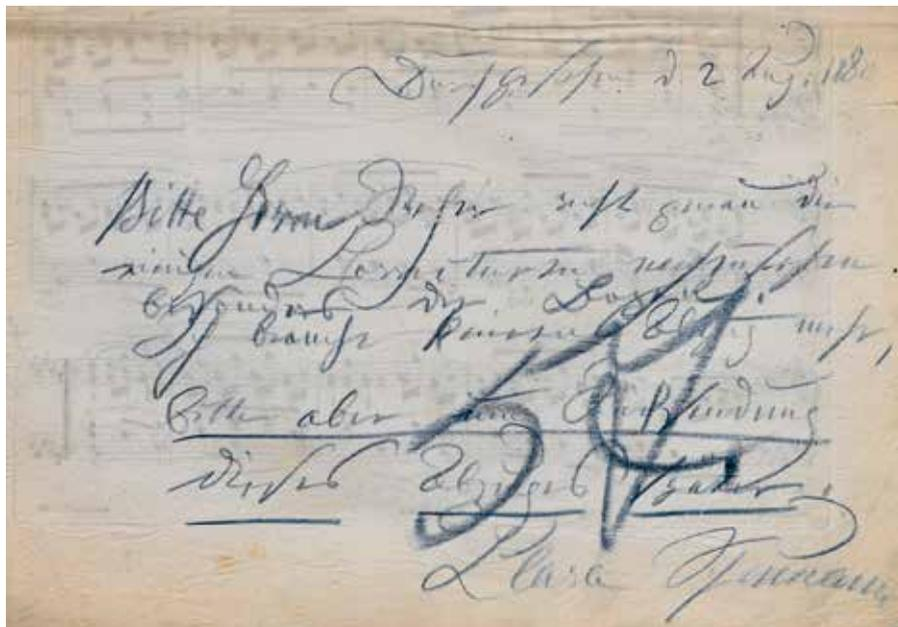 Durchgesehen d. 2 Aug.
Bitte Herrn recht genau die
Correcturen nachzusehen
besonders die Bogen.
Ich brauche keinen Abzug mehr,
bitte aber um Rücksendung
dieses Abzuges
Clara Schumann